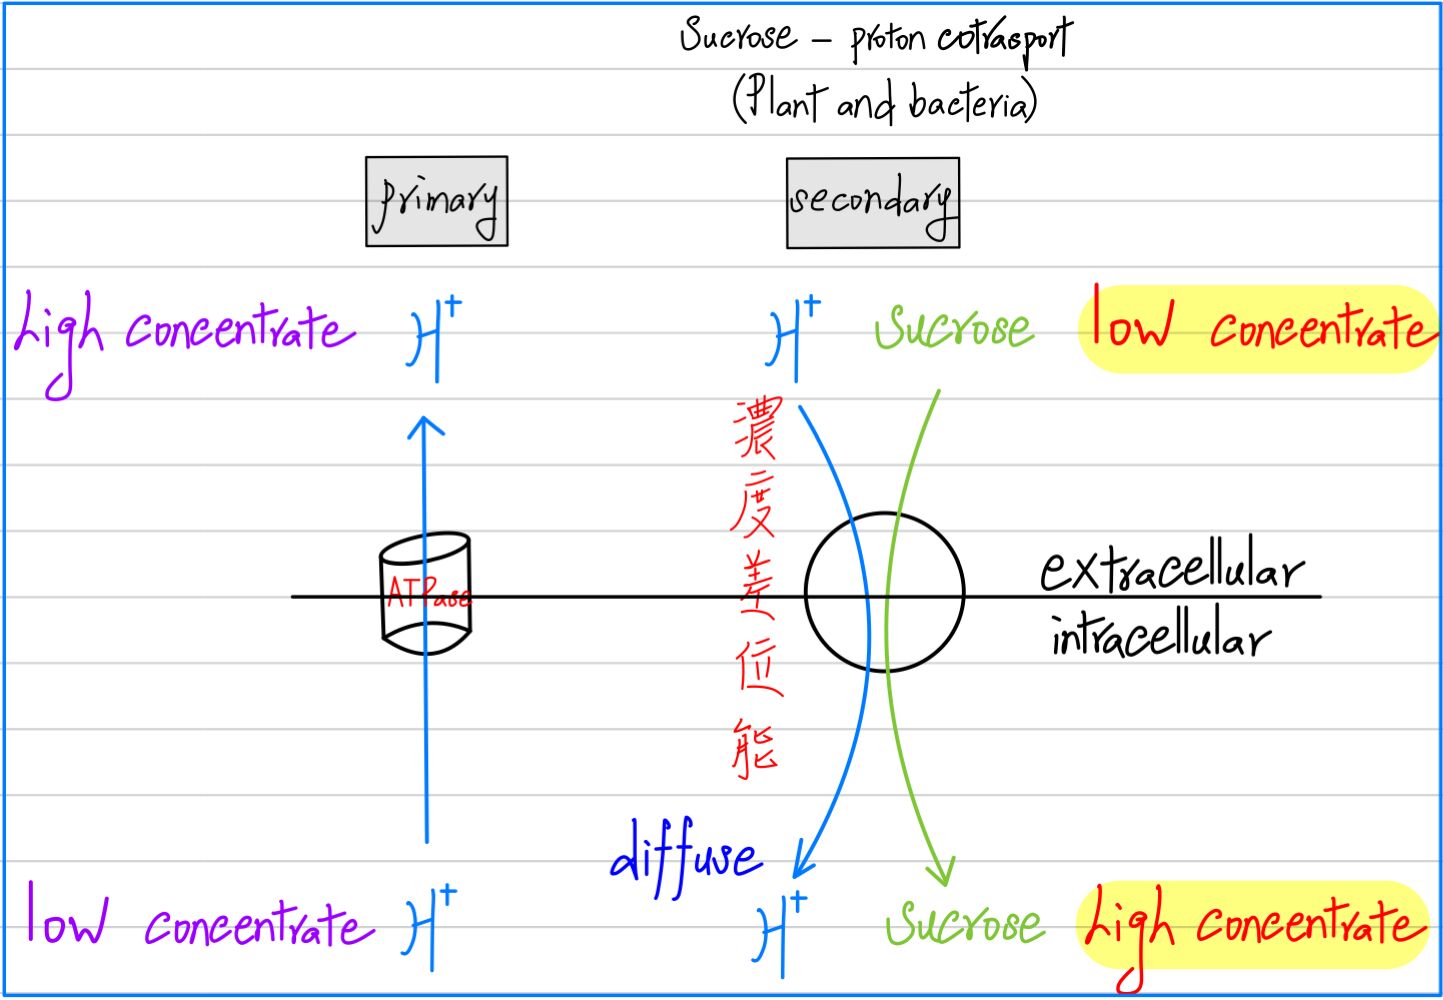 Sucrose – proton cotrasport
(Plant and bacteria)
primary
secondary
high concentrate H+
H+ Sucrose low concentrate
濃度差位能
ATPase
extracellular
intracellular
diffuse
low concentrate H+
H+ Sucrose high concentrate